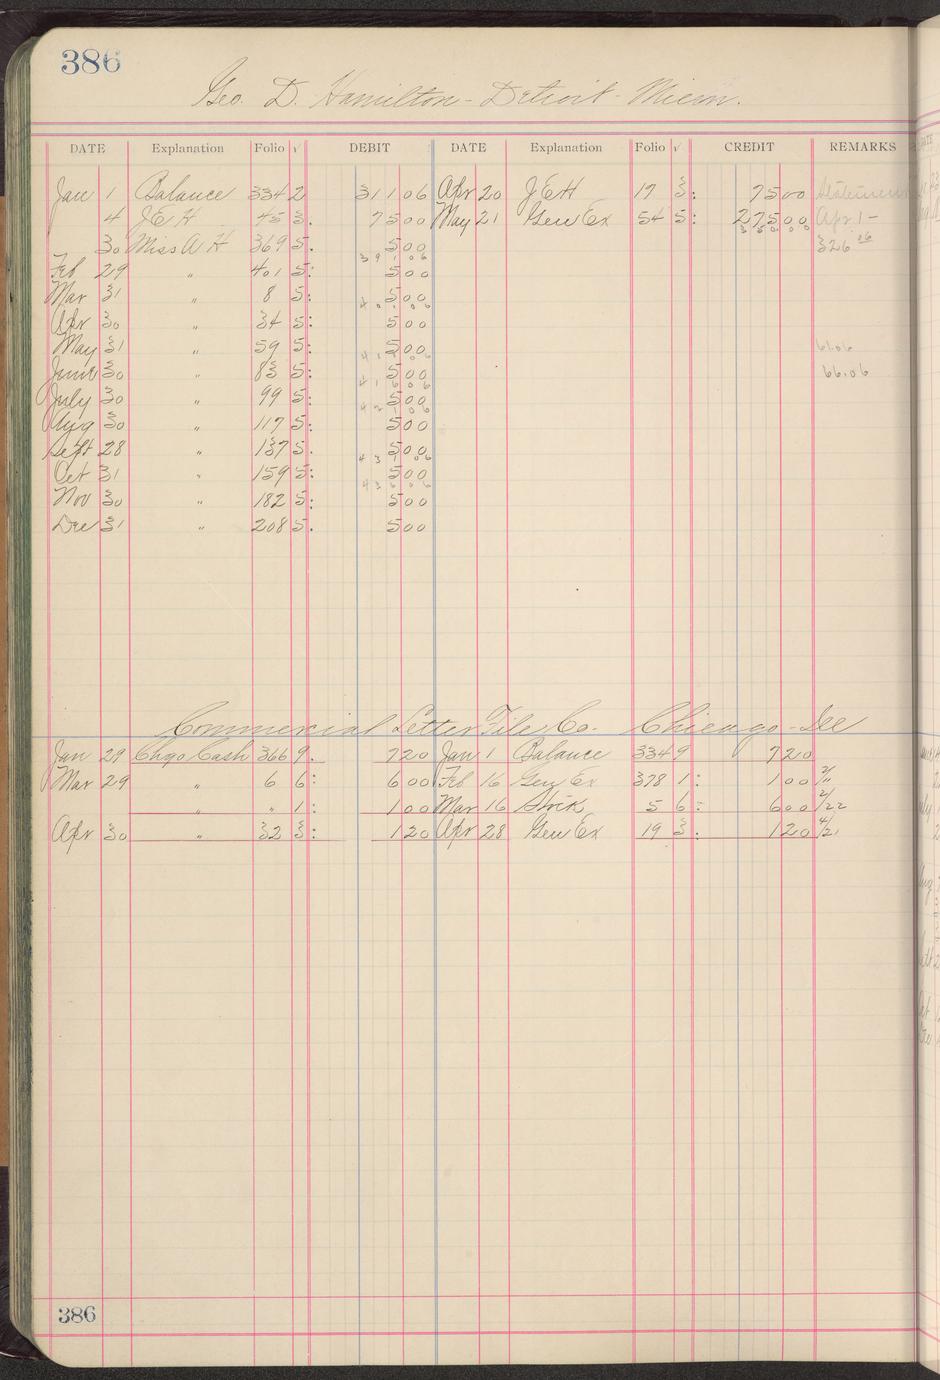 386
Geo. D. Hamilton - Detroit - Mich.
DATE Explanation Folio √ DEBIT DATE Explanation Folio √ CREDIT REMARKS
Jan 1 Balance 334 2 311 06 Apr 20 JEH 17 3: 75 00 Statement
4 JEH 45 3. 75 00 May 21 Gen Ex 54 5: 275 00 Apr 1 -
350 00
30 Miss A H 369 5. 5 00 326 06
391 06
Feb 29 " 401 5: 5 00
Mar 31 " 8 5: 5 00
Apr 30 " 34 5: 5 00
May 31 " 59 5: 5 00 61.06
June 30 " 83 5: 5 00 66.06
416 06
July 30 " 99 5: 5 00
421 06
Aug 30 " 117 5: 5 00
Sept 28 " 137 5. 5 00
431 06
Oct 31 " 159 5: 5 00
436 06
Nov 30 " 182 5: 5 00
Dec 31 " 208 5. 5 00
Commercial Letter Files Co. Chicago - Ills
Jan 29 Chgo Cash 366 9. 7 20 Jan 1 Balance 334 9 7 20
Mar 29 " 6 6: 6 00 Feb 16 Gen Ex 378 1: 1 00
" " 1: 1 00 Mar 16 Stock 5 6: 6 00 2/22
Apr 30 " 32 3: 1 20 Apr 28 Gen Ex 19 3: 1 20 4/21
386